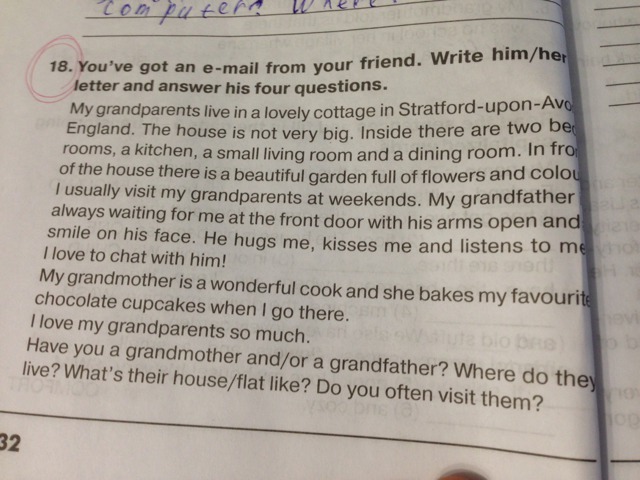 computer? Where
18. You've got an e-mail from your friend. Write him/her
letter and answer his four questions.
My grandparents live in a lovely cottage in Stratford-upon-Avo
England. The house is not very big. Inside there are two be
rooms, a kitchen, a small living room and a dining room. In fro
of the house there is a beautiful garden full of flowers and colou
I usually visit my grandparents at weekends. My grandfather
always waiting for me at the front door with his arms open and
smile on his face. He hugs me, kisses me and listens to me
I love to chat with him!
My grandmother is a wonderful cook and she bakes my favourite
chocolate cupcakes when I go there.
I love my grandparents so much.
Have you a grandmother and/or a grandfather? Where do they
live? What's their house/flat like? Do you often visit them?
32